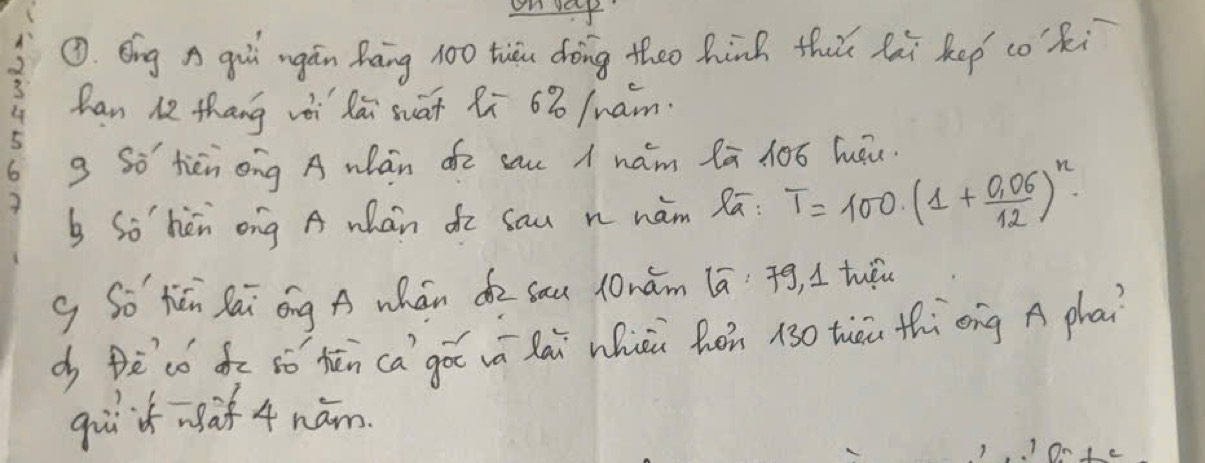 Ôn tập.
①. Ông A gửi ngân hàng 100 triệu đồng theo hình thức lãi kép có kì
hạn 12 tháng với lãi suất là 6% /năm.
a, Số tiền ông A nhận đc sau 1 năm là 106 triệu.
b, Số tiền ông A nhận đc sau n năm là: T = 100.(1 + 0,06/12)^n.
c, Số tiền lãi ông A nhận đc sau 10 năm là: 79,1 triệu
d, Để có đc số tiền cả gốc và lãi nhiều hơn 130 triệu thì ông A phải
gửi ít nhất 4 năm.
1
2
3
4
5
6
7